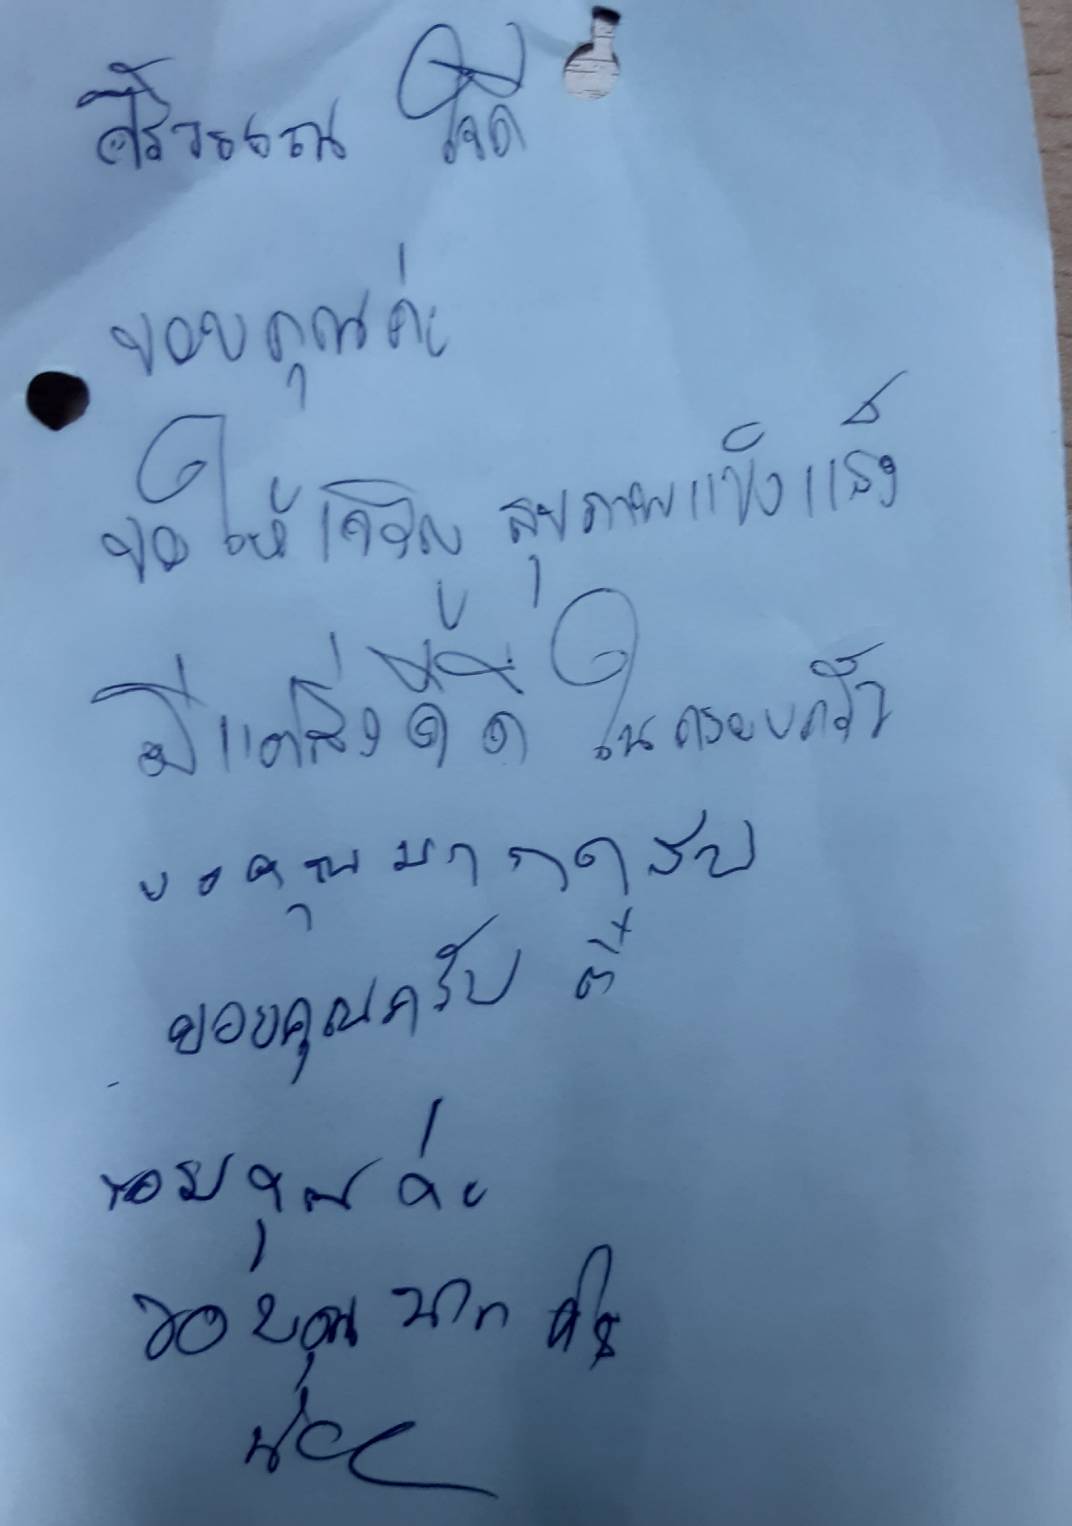 ศิริวรรณ ใจดี
ขอบคุณค่ะ
ขอให้เจริญ สุขภาพแข็งแรง
มีแต่สิ่งดีดี ในครอบครัว
ขอคุณมากครับ
ขอบคุณครับ ตี๋
ขอบคุณ ค่ะ
ขอบคุณ มาก